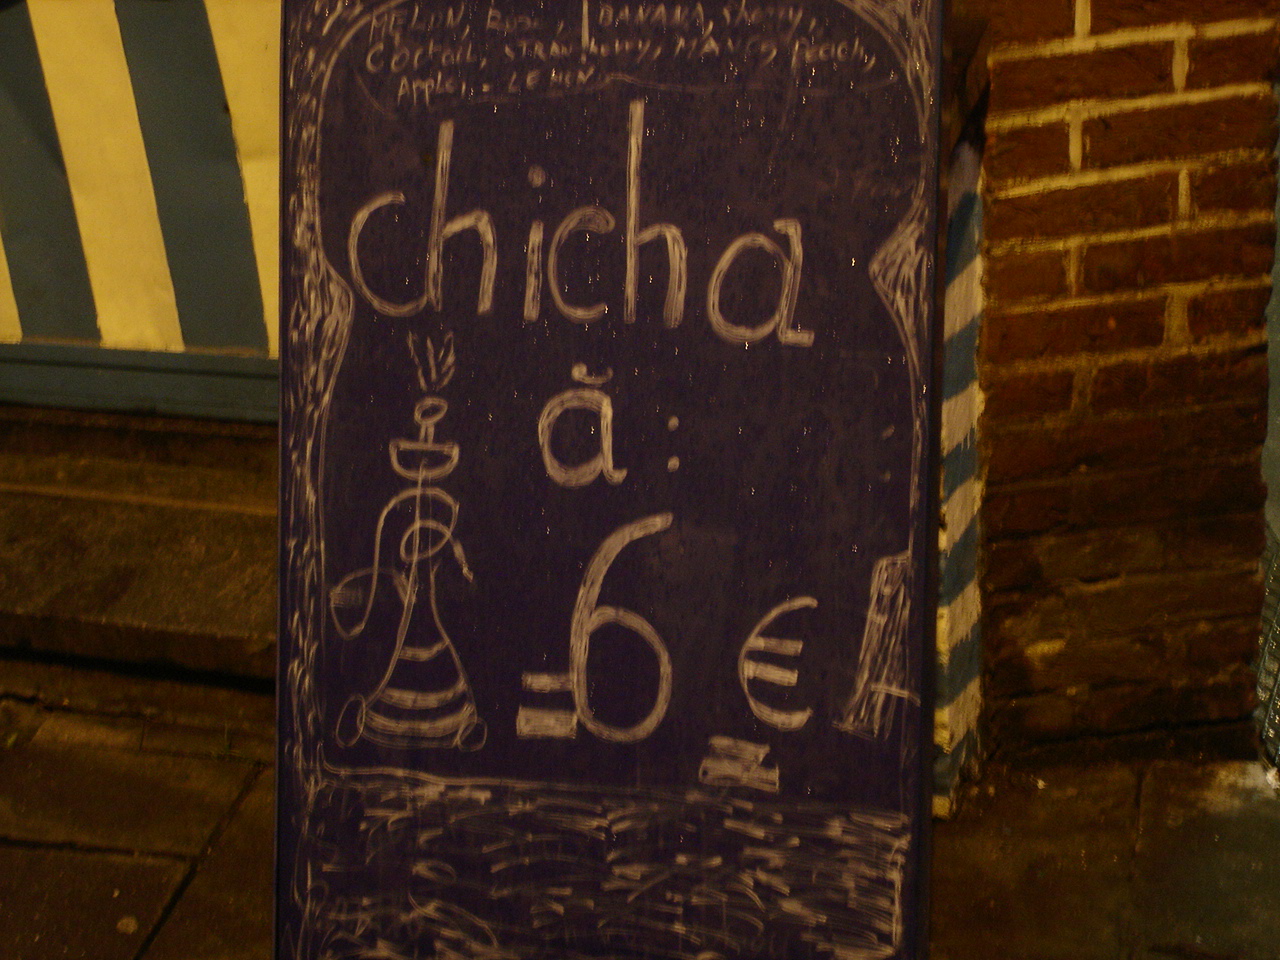 MELON, Rose, BANANA, cherry,
Cocktail, strawberry, MANGO, peach,
Apple, - LEMON
chicha
à :
=6 €